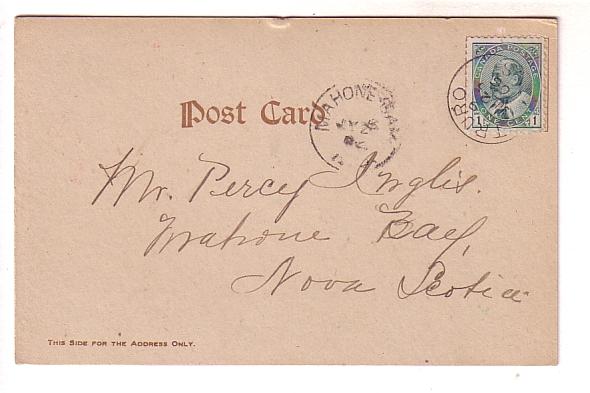 CANADA POSTAGE
ONE CENT
1 1
TRURO
Post Card
MAHONE BAY
Mr. Percy Inglis.
Mahone Bay,
Nova Scotia
THIS SIDE FOR THE ADDRESS ONLY.